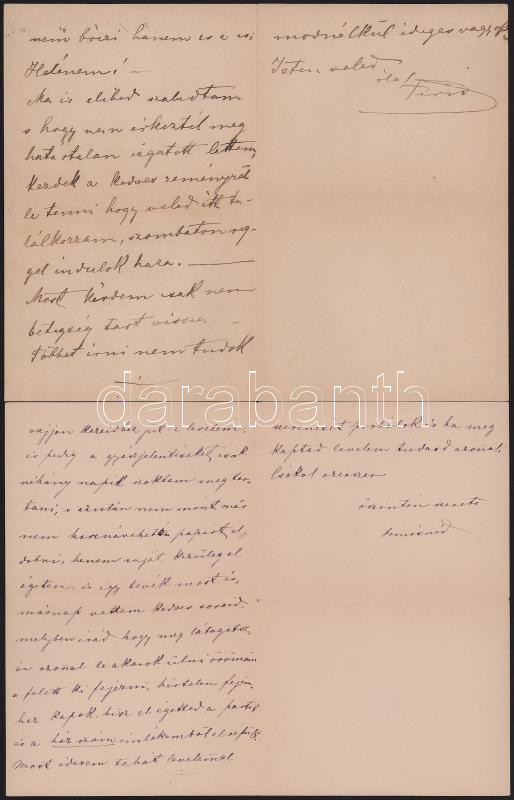 nem bőizi hanem es a csi
Helénem! —
Ma is elibed szaladtam
s hogy nem érkeztél meg
hatástalan izgatott lettem,
kezdek a kedves reményről
le tenni hogy veled itt ta-
lálkozzam, szombaton reg-
gel indulok haza. —
Most kérdem csak nem
betegség tart vissza. —
Többet irni nem tudok
modnélkül ideges vagyok
Isten veled
ölel
darabanth
vajjon kezeidhez jut e levelem,
és pedig a gyászjelentéseket csak
néhány napik szoktam meg tar-
tani, s azután nem mint más
nem hasznavehető papirost el
dobni, hanem saját kezüleg el
égetem, és igy tevék most is,
másnap vettem kedves soraid
melyben irád hogy meg látogatsz,
én azonal le akarok ülni örömöm
a felett ki fejezni, hirtelen fejem
hez kapok, hisz el égetted a
és a ház szám emlékemböl el
Most ideresem tehát levelemet
szerencsét próbálok és ha meg
kaptad levelem tudasd azonal,
Csókol ezerszer
őszintén szerető